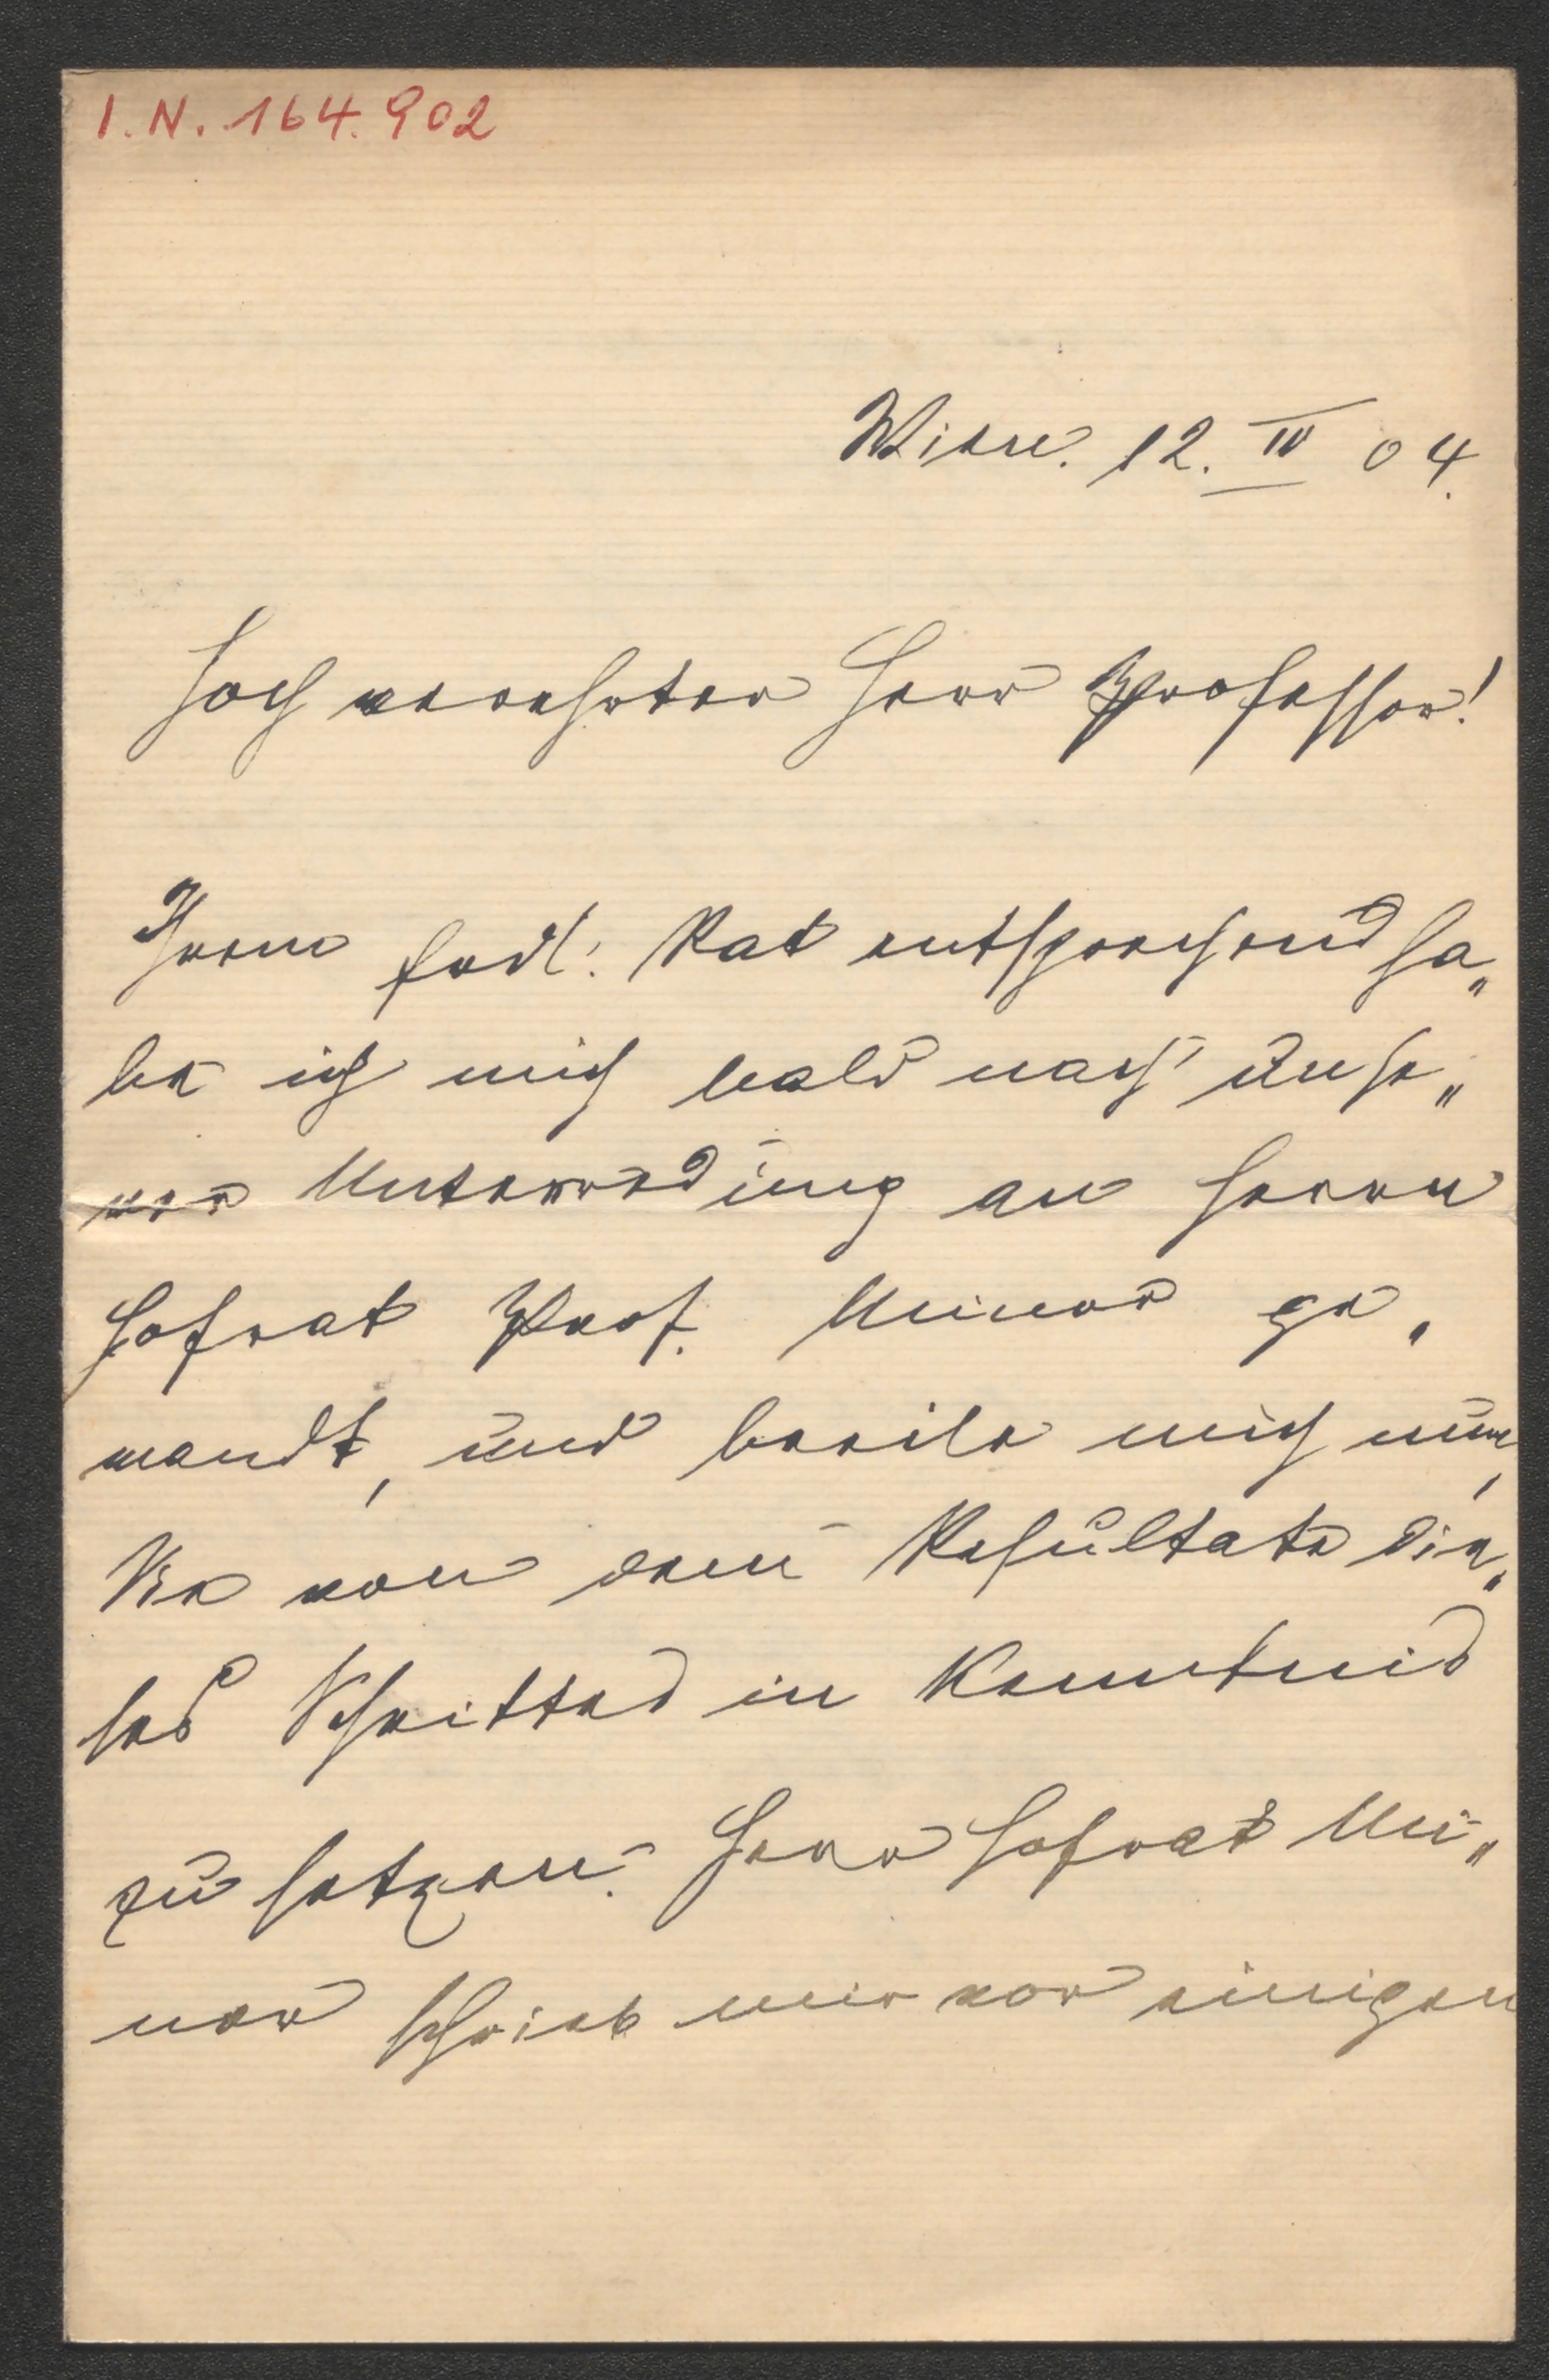 I.N. 164.902
Wien. 12. IV 04.
Hoch verehrter Herr Professor!
Ihrem frdl. Rat entsprechend ha„
be ich mich bald nach unse„
rer Unterredung an Herrn
Hofrat Prof. Minor ge„
wandt, und beeile mich nun,
Sie von dem Resultate die„
ses Schrittes in Kenntnis
zu setzen. Herr Hofrat Mi„
nor schrieb mir vor einigen